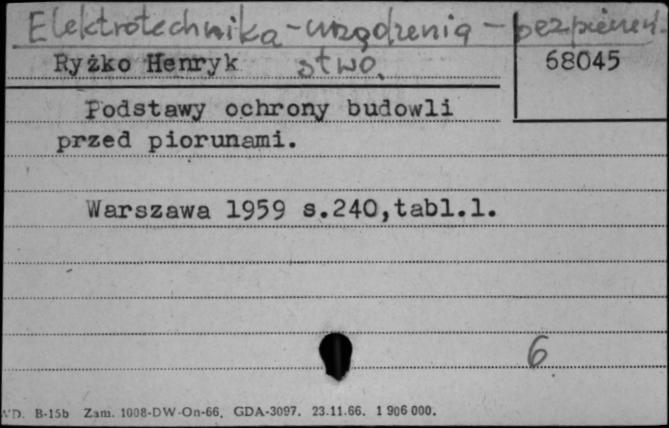 Elektrotechnika - urządzenia - bezpieczeń-
stwo.
Ryżko Henryk
68045
Podstawy ochrony budowli
przed piorunami.
Warszawa 1959 s.240,tabl.1.
6
WD. B-15b Zam. 1008-DW-On-66. GDA-3097. 23.11.66. 1 906 000.